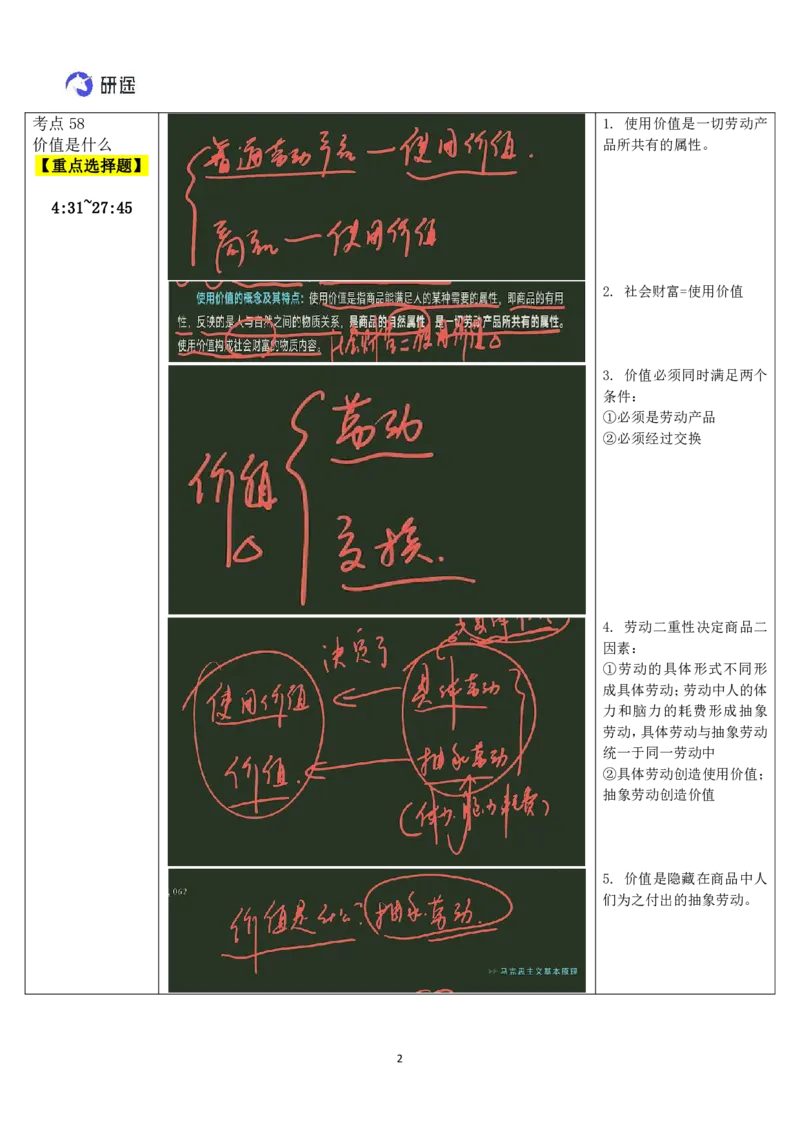 研途
考点 58
价值是什么
【重点选择题】
4:31~27:45
普通劳动产品一使用价值.
商品一使用价值
使用价值的概念及其特点：使用价值是指商品能满足人的某种需要的属性，即商品的有用
性，反映的是人与自然之间的物质关系，是商品的自然属性，是一切劳动产品所共有的属性。
使用价值构成社会财富的物质内容。
社会财富=使用价值
价值
劳动
交换.
决定了
使用价值
具体劳动
价值.
抽象劳动
(体力.脑力耗费)
062
价值是什么?抽象劳动.
>> 马克思主义基本原理
1. 使用价值是一切劳动产
品所共有的属性。
2. 社会财富=使用价值
3. 价值必须同时满足两个
条件：
①必须是劳动产品
②必须经过交换
4. 劳动二重性决定商品二
因素：
①劳动的具体形式不同形
成具体劳动；劳动中人的体
力和脑力的耗费形成抽象
劳动，具体劳动与抽象劳动
统一于同一劳动中
②具体劳动创造使用价值；
抽象劳动创造价值
5. 价值是隐藏在商品中人
们为之付出的抽象劳动。
2